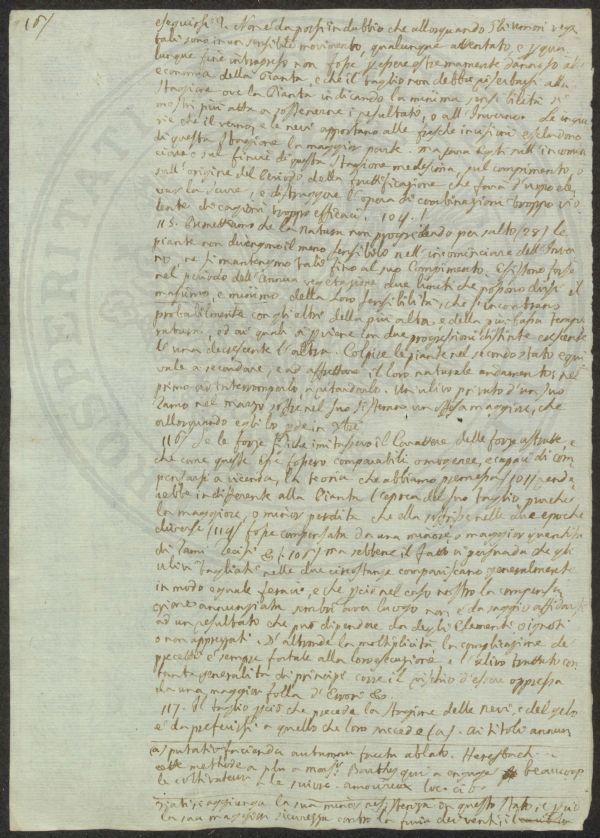 (6)
eseguirsi? Non è da porsi in dubbio che allorquando gli umori vege
tali sono in un sensibile movimento, qualunque attentato, e per qua
lunque fine intrapreso non fosse per essere estremamente dannoso all'
economia della Pianta, e che il taglio non debba riserbarsi alla
stagione ove la Pianta indicando la minima sensibilità si
mostri più atta a sostenerne i resultati, o all'Inverno. Le ingiu
rie che il verno, e le nevi apportano alle fresche incisioni escludono
di questa stagione la maggior parte. ma sarà egli sull'incomin
ciare o sul finire di questa stagione medesima, sul compimento, o
sull'origine del Periodo della fruttificazione che farà d'uopo
la scure, e distruggere l'opera di combinazioni troppo
di cagioni troppo efficaci. 104.
115. Rimettiamo che la Natura non progredendo per salto (28) le
piante non divengono il meno sensibile nell'incominciare dell'Inver
no, nè si mantengono tali fino al suo compimento. Esistono forse
nel periodo dell'annua vegetazione due limiti che possono dirsi il
massimo, e minimo della loro sensibilità, che s'incontrano
probabilmente con gli altri della più alta, e della più bassa tempe
ratura, ed ai quali si perviene con due progressioni distinte crescente
l'una decrescente l'altra. Colpire le piante nel secondo stato equi
vale a secondare, e ad affrettare il loro naturale andamento; nel
primo ad interromperlo, o ritardarlo. Un ulivo privato d'un suo
ramo nel marzo soffre nel suo sistema un'offesa maggiore, che
allorquando egli lo perde in
116. Se le forze fisiche imitassero il Carattere delle forze astratte, e
che come queste esse fossero comparabili omogenee, e capaci di com
pensarsi a vicenda, la teoria che abbiamo premessa (101) rende
rebbe indifferente alla Pianta l'epoca del suo taglio purchè
la maggiore, o minor perdita che ella soffrisse nelle due epoche
diverse (114) fosse compensata da una minore o maggior quantità
di rami recisi &. (105) ma sebbene il fatto ci persuada che gli
ulivi tagliati nelle due circostanze compariscano generalmente
in modo eguale feraci, e che perciò nel caso nostro la compensa
zione annunziata sembri aver luogo non è da saggio affidarsi
ad un resultato che può dipendere da degli Elementi o ignoti
o non apprezzati. D'altronde la moltiplicità la complicazione de
precetti è sempre fatale alla loro esecuzione e l'ulivo trattato con
tanta generalità di principi corre il rischio d'essere oppresso
da una maggior folla d'Errori &.
117. Il taglio perciò che precede la stagione delle nevi, e del gelo
è da preferirsi a quello che loro succede (a). Ai titoli annun
(a) putatio facienda autumno fructu ablato. Heresbach
cette methode a plu a Mons. Barthes qui a engagé beaucoup
de cultivateurs a le suivre. amoureux loc. cit.
ziati si aggiunga la sua minor resistenza in questo stato, e perciò
la sua maggior sicurezza contro la furia dei venti,